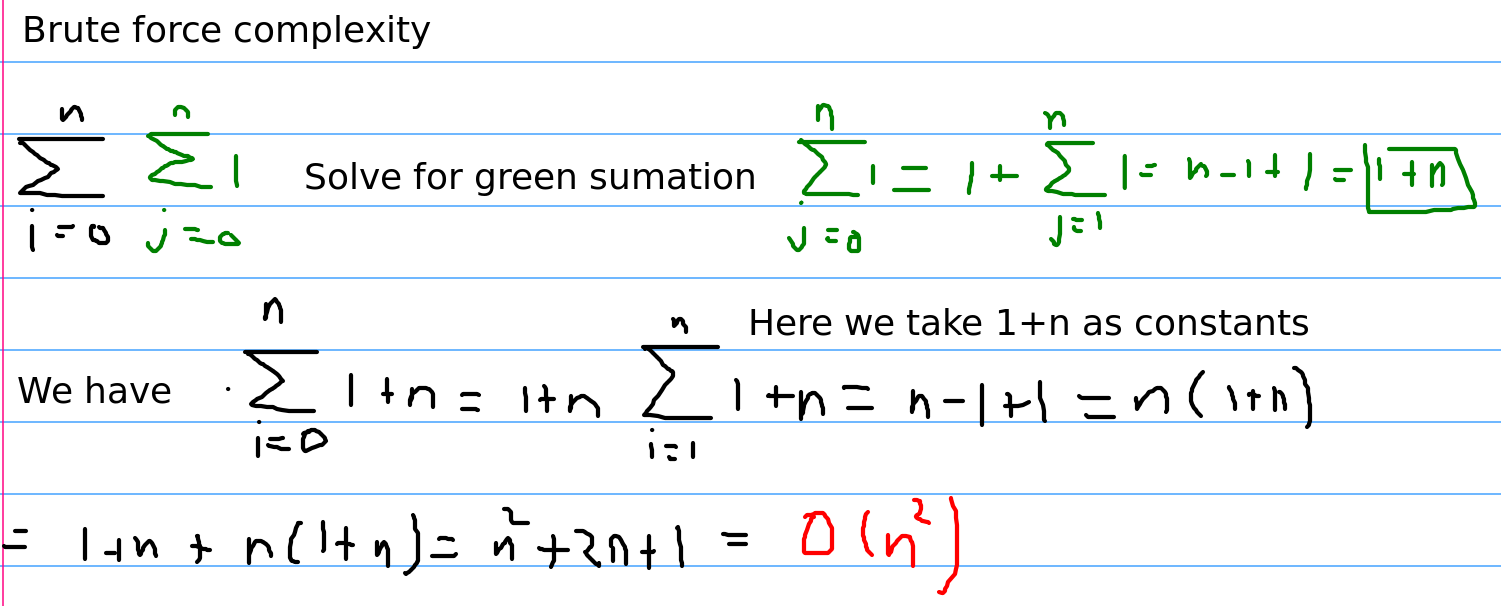 Brute force complexity
∑_{i=0}^{n} ∑_{j=0}^{n} 1 Solve for green sumation ∑_{j=0}^{n} 1 = 1 + ∑_{j=1}^{n} 1 = n-1+1 = 1+n
Here we take 1+n as constants
We have ∑_{i=0}^{n} 1+n = 1+n ∑_{i=1}^{n} 1+n = n-1+1 = n(1+n)
= 1+n + n(1+n) = n²+2n+1 = O(n²)